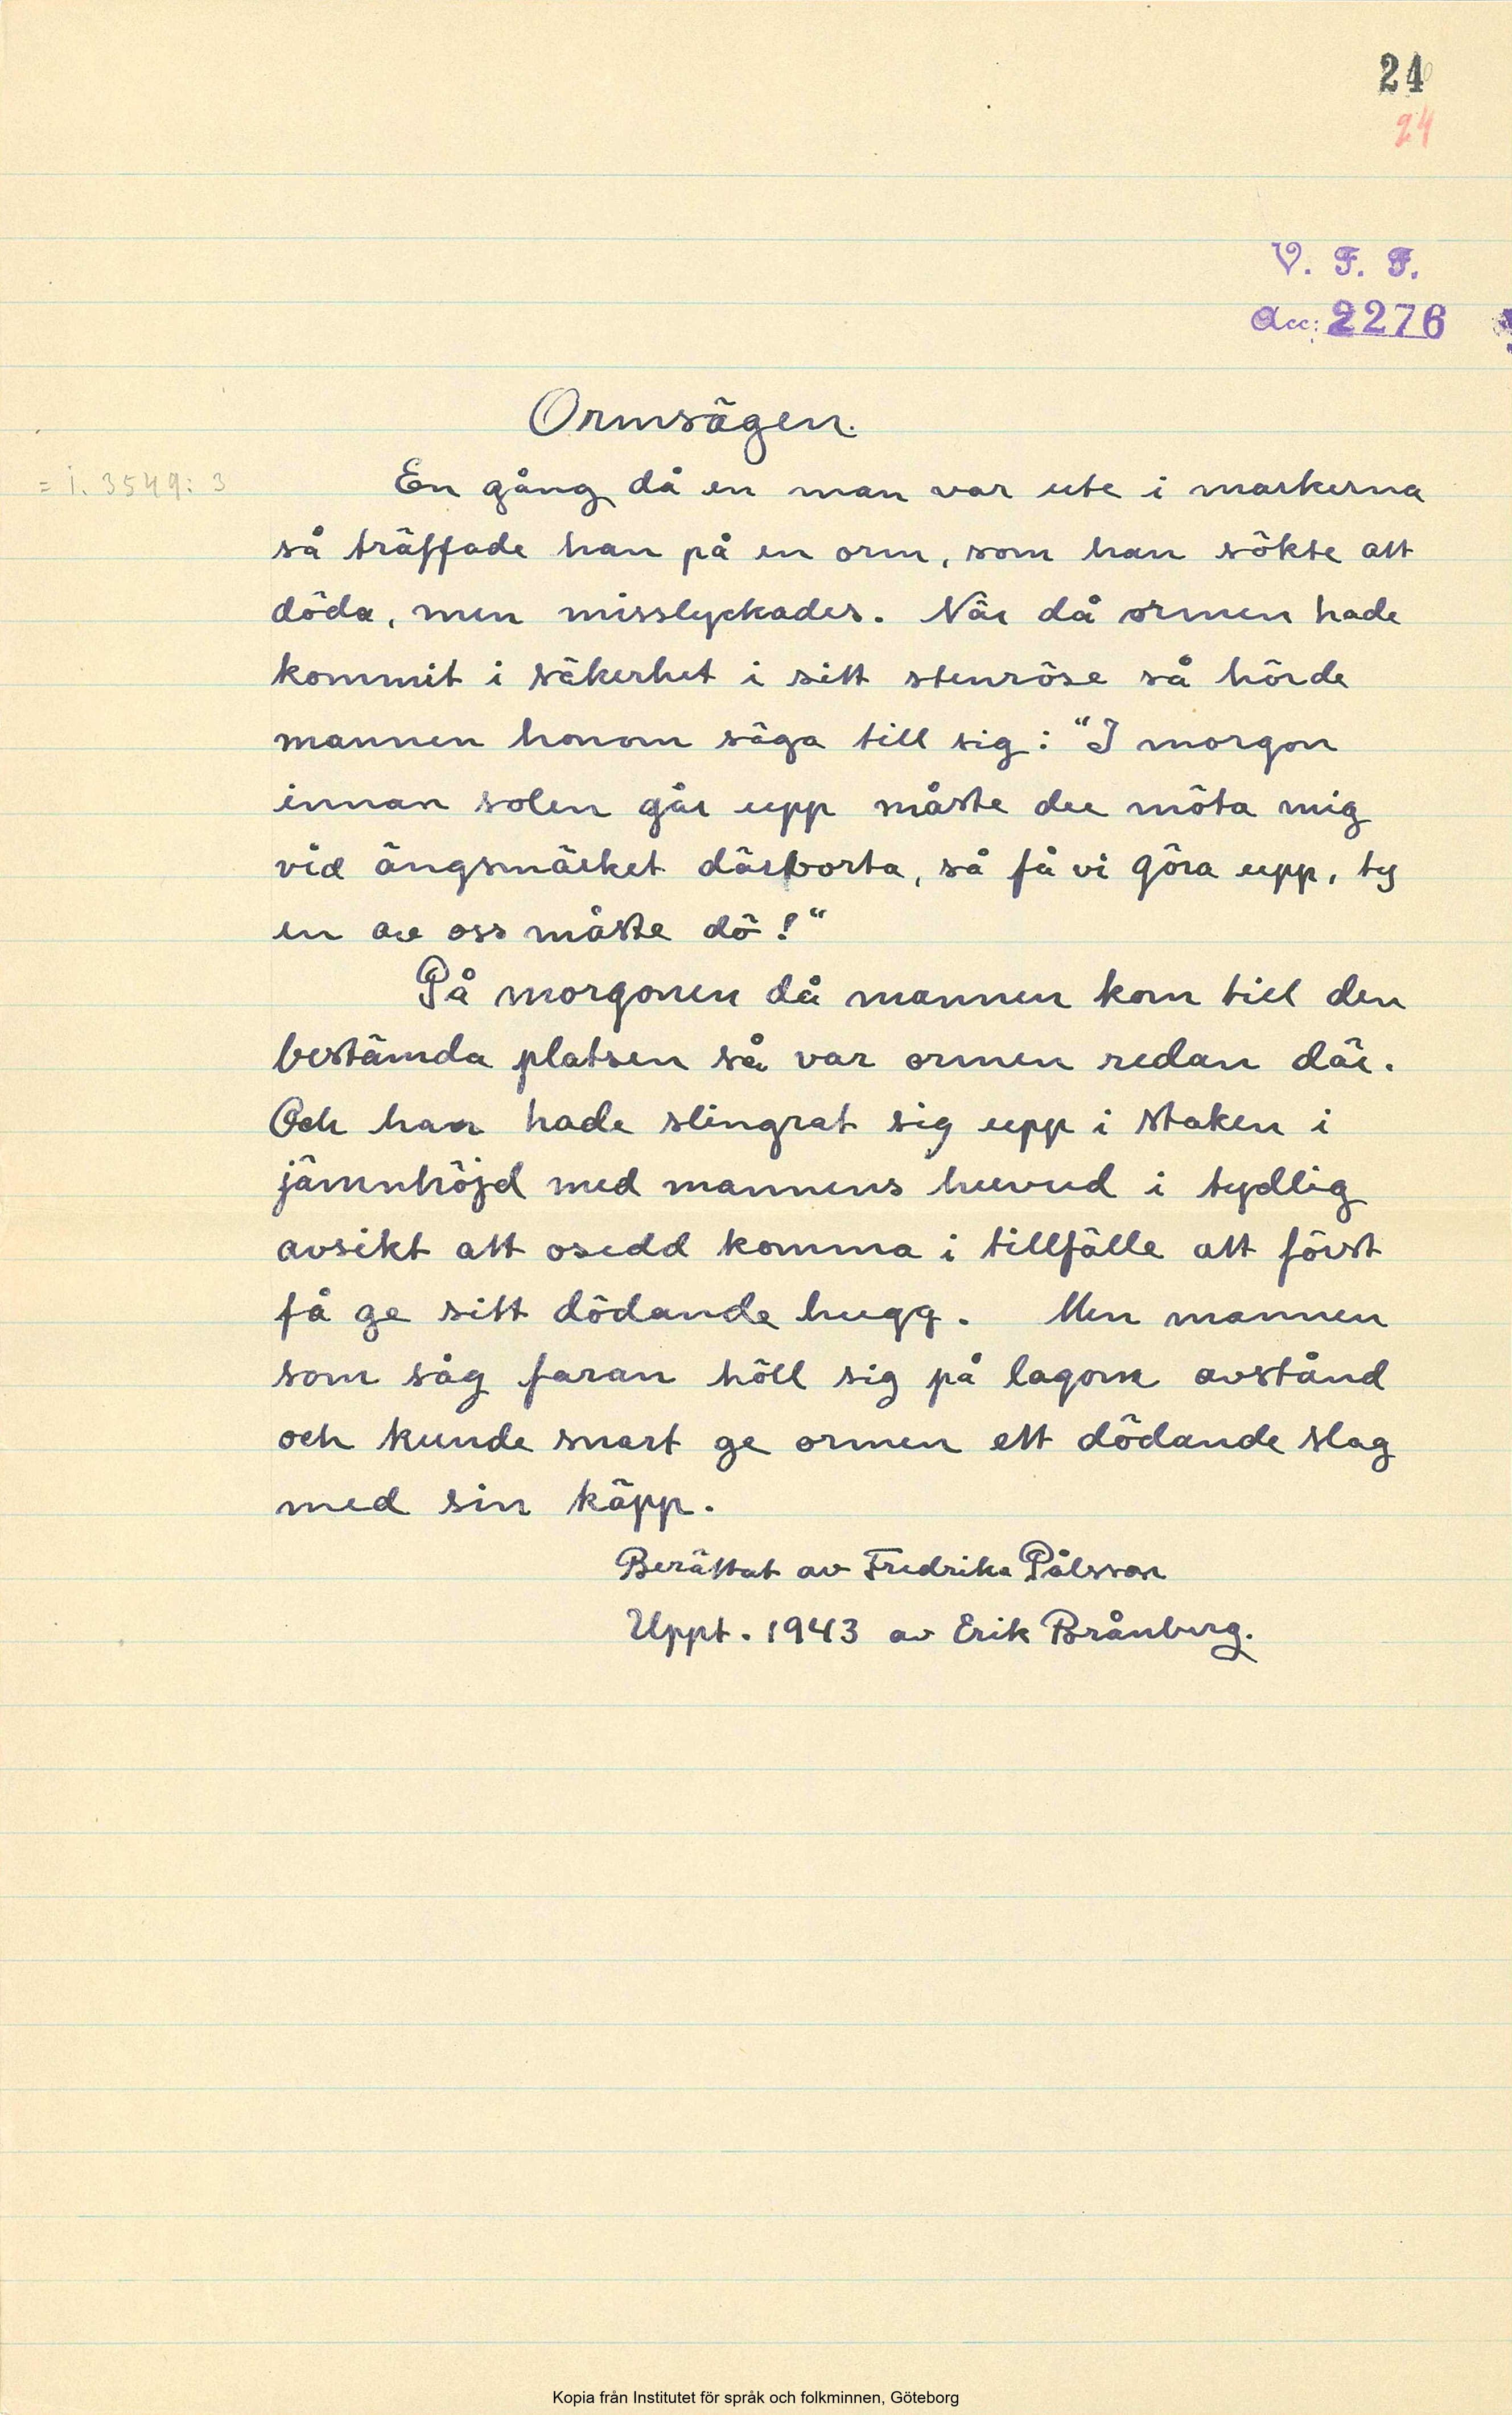 24
24
V. F. F.
Acc: 2276
Ormsägen.
= i. 3549: 3
En gång då en man var ute i markerna
så träffade han på en orm, som han sökte att
döda, men misslyckades. När då ormen hade
kommit i säkerhet i sitt stenröse så hörde
mannen honom säga till sig: "I morgon
innan solen går upp måste du möta mig
vid ängsmärket därborta, så få vi göra upp, ty
en av oss måste dö!"
På morgonen då mannen kom till den
bestämda platsen så var ormen redan där.
Och han hade slingrat sig upp i staken i
jämnhöjd med mannens huvud i tydlig
avsikt att osedd komma i tillfälle att först
få ge sitt dödande hugg. Men mannen
som såg faran höll sig på lagom avstånd
och kunde snart ge ormen ett dödande slag
med sin käpp.
Berättat av Fredrika Pålsson
Uppt. 1943 av Erik Brånberg.
Kopia från Institutet för språk och folkminnen, Göteborg